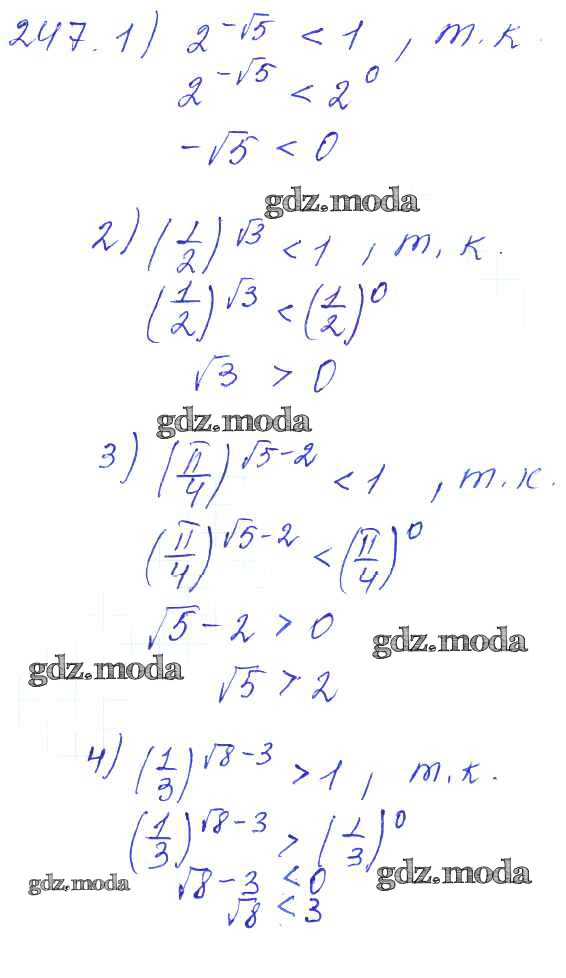 247. 1) 2^{-√5} < 1, т.к.
2^{-√5} < 2^0
-√5 < 0
gdz.moda
2) (1/2)^{√3} < 1, т.к.
(1/2)^{√3} < (1/2)^0
√3 > 0
gdz.moda
3) (π/4)^{√5-2} < 1, т.к.
(π/4)^{√5-2} < (π/4)^0
√5-2 > 0
gdz.moda
gdz.moda
√5 > 2
4) (1/3)^{√8-3} > 1, т.к.
(1/3)^{√8-3} > (1/3)^0
√8-3 < 0
gdz.moda
gdz.moda
√8 < 3